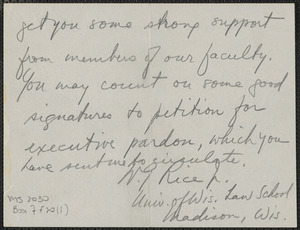 get you some strong support
from members of our faculty.
You may count on some good
signatures to petition for
executive pardon, which you
have sent me to circulate.
W. G. Rice Jr.
Univ. of Wis. Law School
Madison, Wis.
MS 2030
Box 7